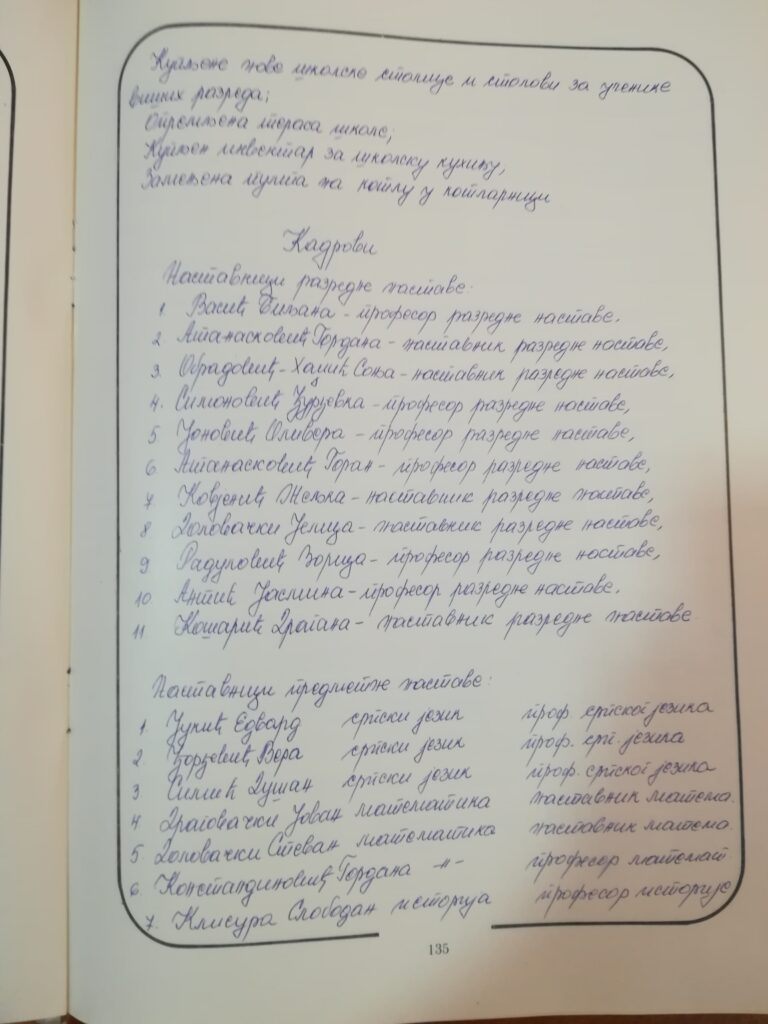 Купљене нове школске столице и столови за ученике
виших разреда;
Опремљена тераса школе;
Купљен инвентар за школску кухињу,
Замењена пумпа на котлу у котларници
Кадрови
Наставници разредне наставе:
1. Васић Биљана - професор разредне наставе,
2. Атанасковић Гордана - наставник разредне наставе,
3. Обрадовић - Хаџић Соња - наставник разредне наставе,
4. Симоновић Ђурђевка - професор разредне наставе,
5 Јоновић Оливера - професор разредне наставе,
6. Атанасковић Горан - професор разредне наставе,
7 Жељка - наставник разредне наставе,
8 Головачки Јелица - наставник разредне наставе,
9. Радуловић Зорица - професор разредне наставе,
10. Антић Јасмина - професор разредне наставе,
11. Кошарић Драгана - наставник разредне наставе.
Наставници предметне наставе:
1. Едвард српски језик проф. српског језика
2. Ђорђевић Вера српски језик проф. срп. језика
3 Симић Душан српски језик проф. српског језика
4. Јован математика наставник матема.
5. Головачки Стеван математика наставник матема.
6. Константиновић Гордана -"- професор математ.
7. Клисура Слободан историја професор историје
135